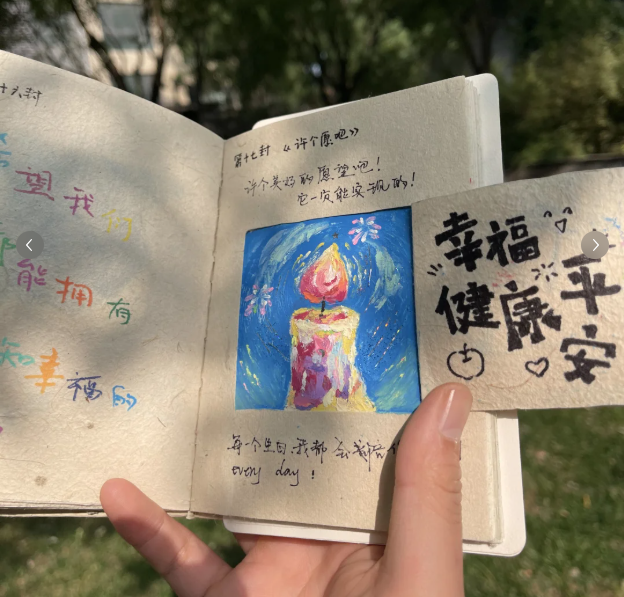 十六封
希
望我们
都
能拥有
知幸福的
第十七封 《许个愿吧》
许个美好的愿望吧！
它一定能实现的！
每一个生日，我都会陪
every day !
幸福
健康
平安